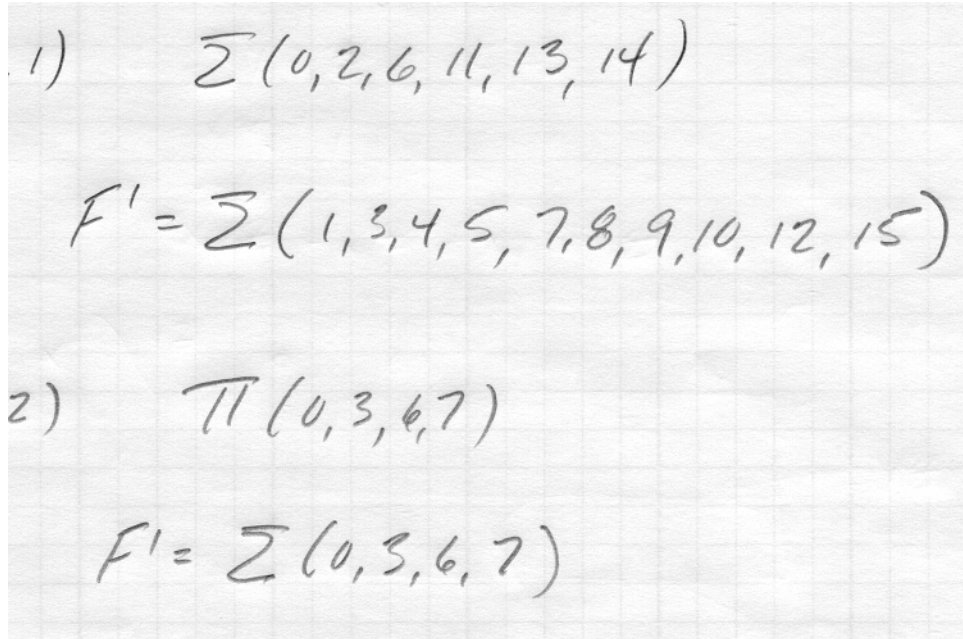 1) Σ(0,2,6,11,13,14)
F' = Σ(1,3,4,5,7,8,9,10,12,15)
2) Π(0,3,6,7)
F' = Σ(0,3,6,7)